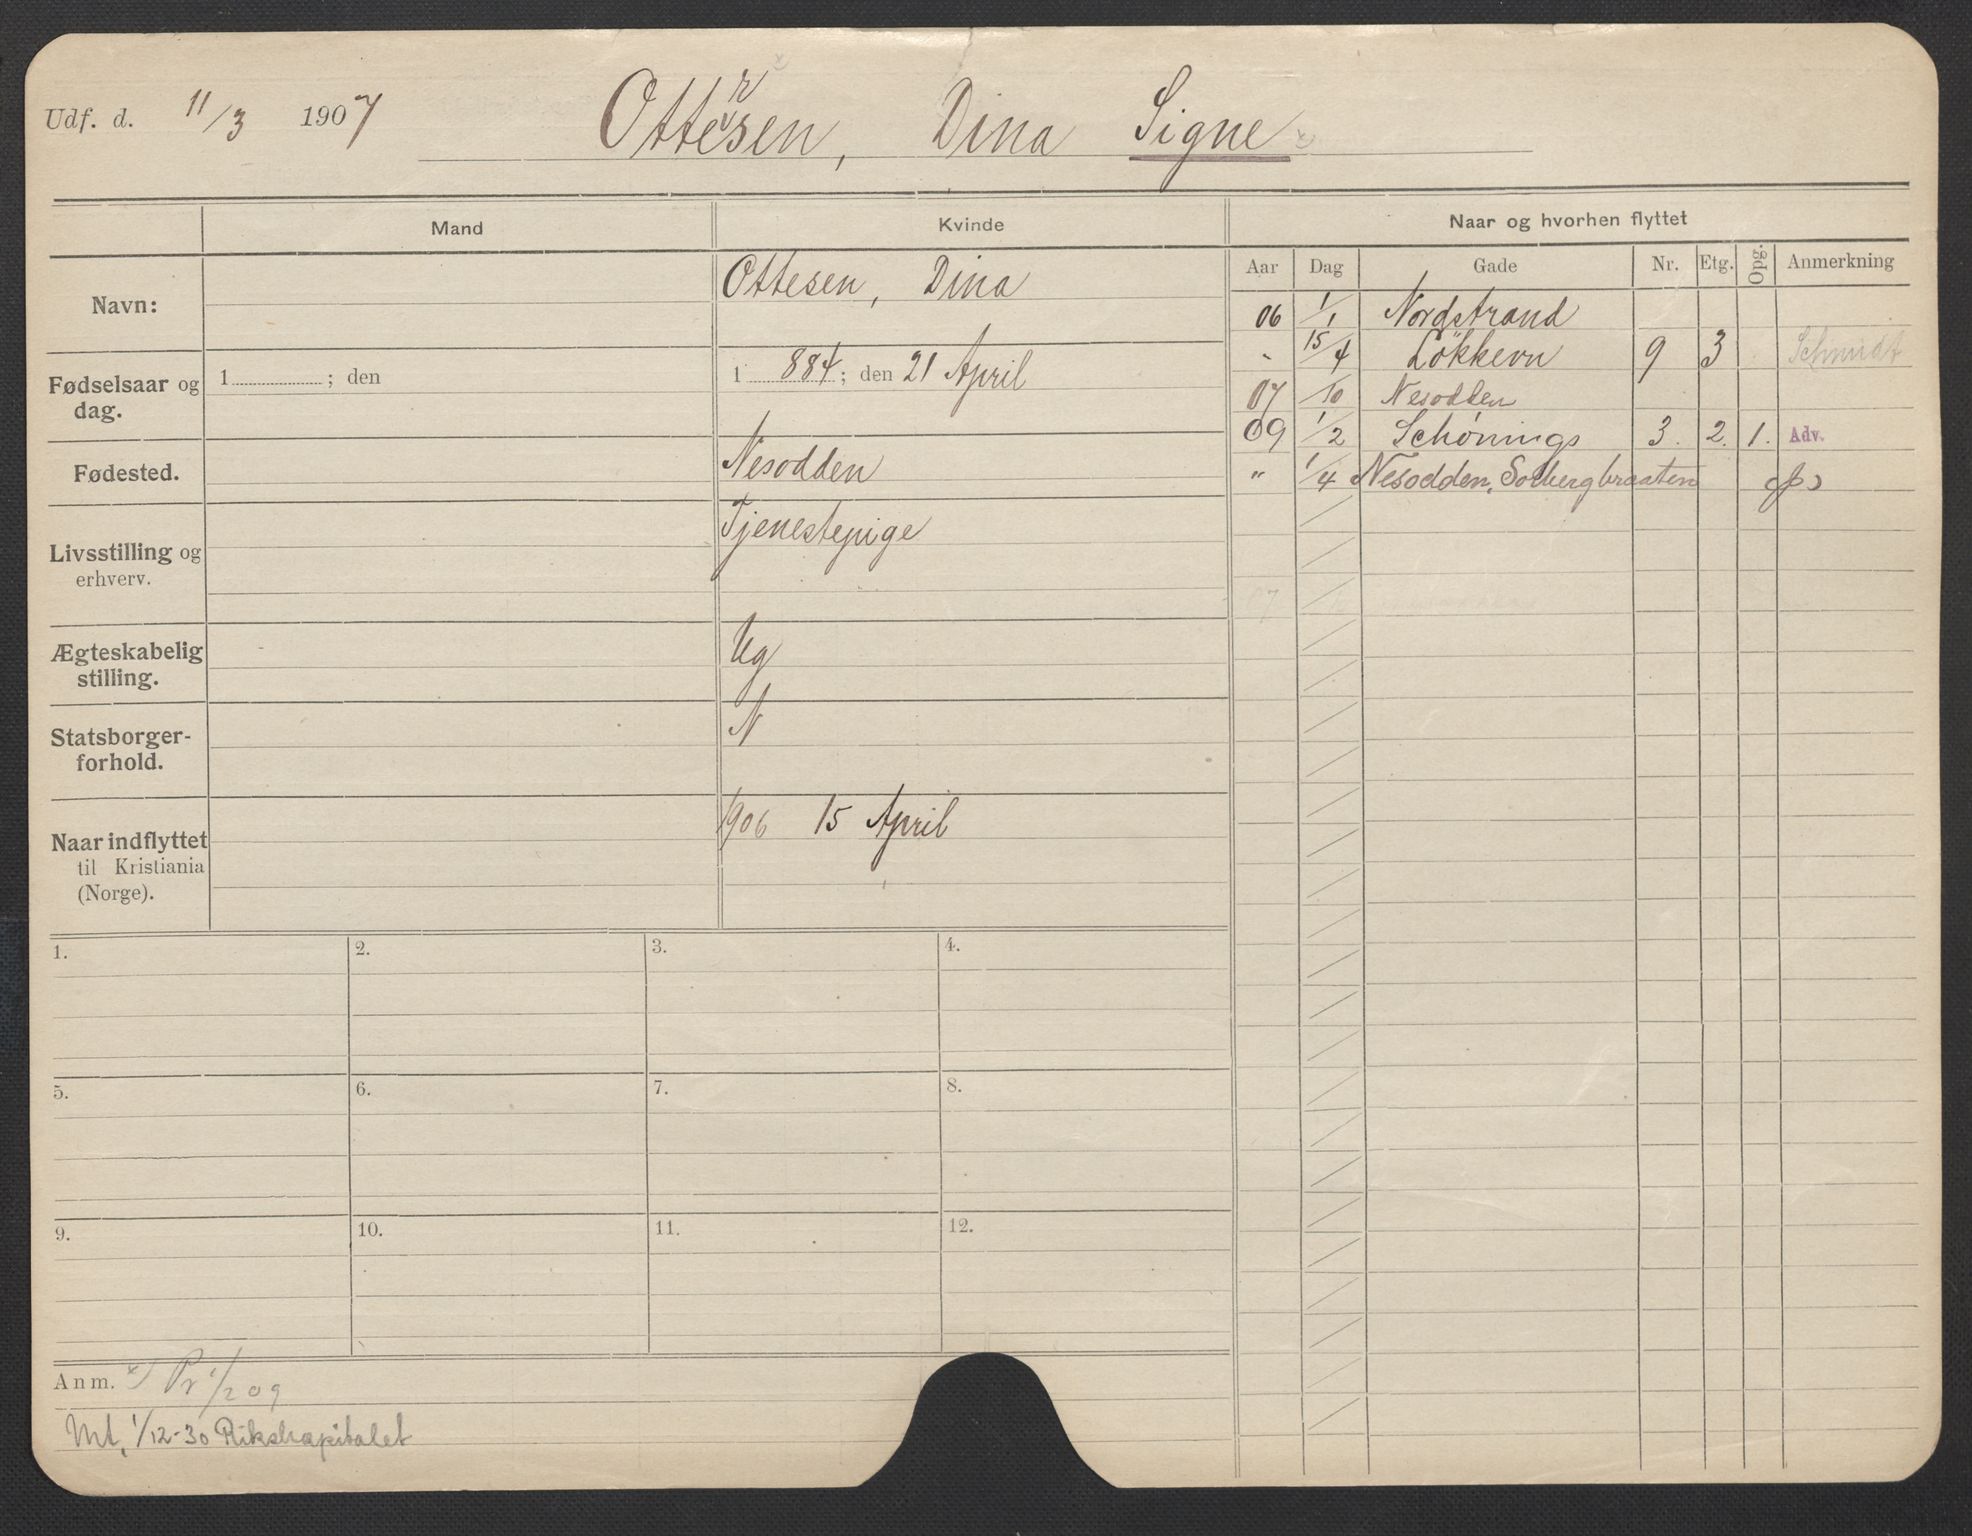 Udf. d. 11/3 1907 Ottersen, Dina Signe
Mand Kvinde Naar og hvorhen flyttet
Aar Dag Gade Nr. Etg. Opg. Anmerkning
Navn: Ottesen, Dina
06 1/1 Nordstrand
" 15/4 Løkkevn 9 3 Schmidt
Fødselsaar og dag. 1 ; den 1 884 ; den 21 April
07 /10 Nesodden
09 1/2 Schønings 3. 2. 1. Adv.
Fødested. Nesodden
" 1/4 Nesodden, Solbergbraaten
Livsstilling og erhverv. Tjenestepige
Ægteskabelig stilling. Ug
Statsborger-
forhold. N
Naar indflyttet 1906 15 April
til Kristiania
(Norge).
1. 2. 3. 4.
5. 6. 7. 8.
9. 10. 11. 12.
Anm. x) Pr 1/2 09
Mt. 1/12-30 Rikshospitalet